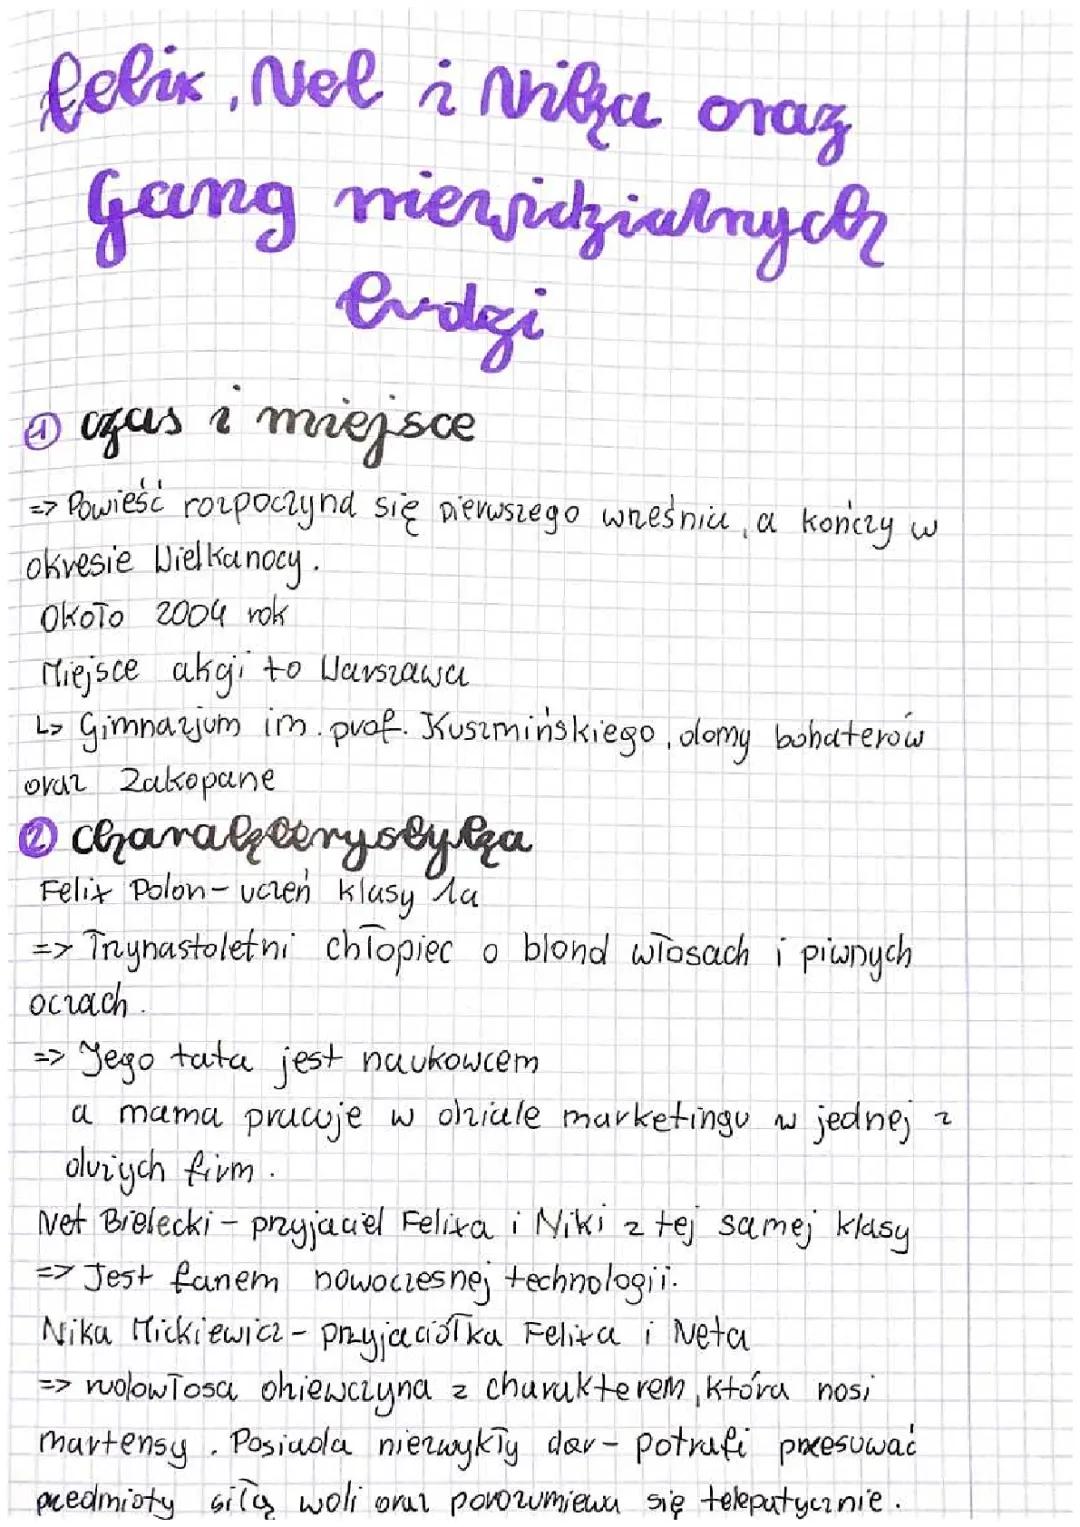 Felix, Net i Nika oraz
Gang niewidzialnych
ludzi
① czas i miejsce
=> Powieść rozpoczyna się pierwszego września, a kończy w
okresie Wielkanocy.
Około 2004 rok
Miejsce akcji to Warszawa
↳ Gimnazjum im. prof. Kuszmińskiego, domy bohaterów
oraz Zakopane
② charakterystyka
Felix Polon - uczeń klasy 1a
=> Trzynastoletni chłopiec o blond włosach i piwnych
oczach.
=> Jego tata jest naukowcem
a mama pracuje w dziale marketingu w jednej z
dużych firm.
Net Bielecki - przyjaciel Felixa i Niki z tej samej klasy
=> Jest fanem nowoczesnej technologii.
Nika Mickiewicz - przyjaciółka Felixa i Neta
=> rudowłosa dziewczyna z charakterem, która nosi
martensy. Posiada niezwykły dar - potrafi przesuwać
przedmioty siłą woli oraz porozumiewa się telepatycznie.